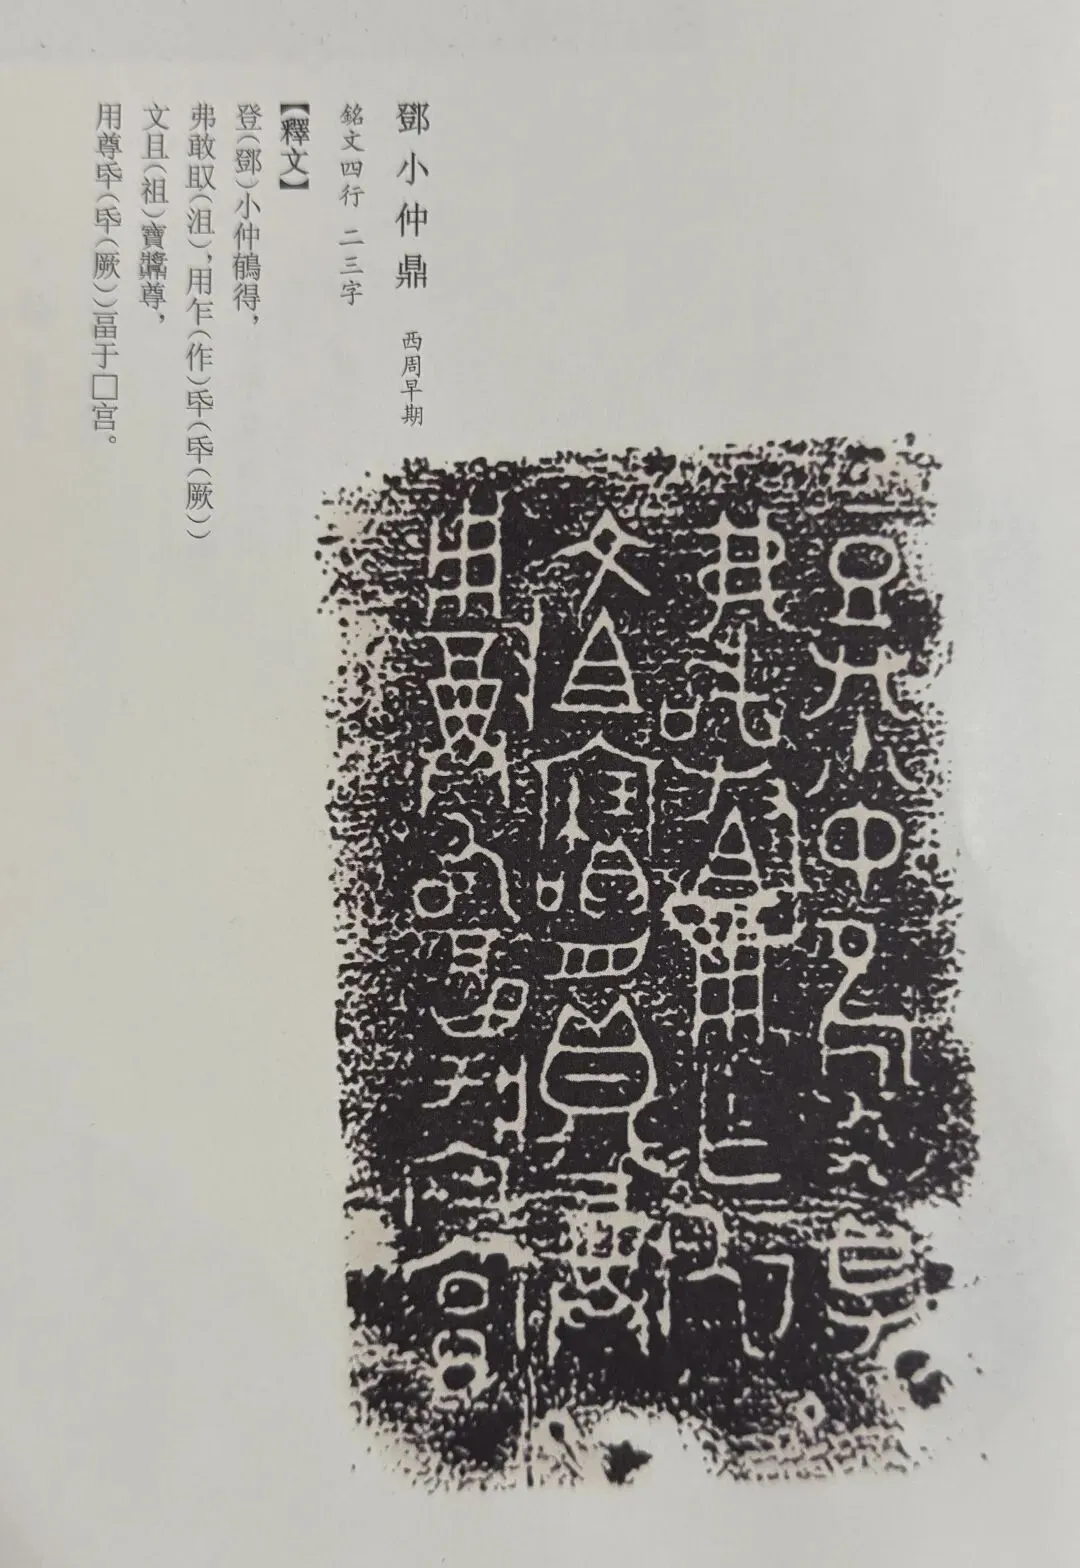 鄧小仲鼎 西周早期
銘文四行 二三字
【釋文】
登(鄧)小仲䧹得,
弗敢取(沮),用乍(作)氒(氒(厥))
文且(祖)寶䵼尊,
用尊氒(氒(厥))畐于□宫。